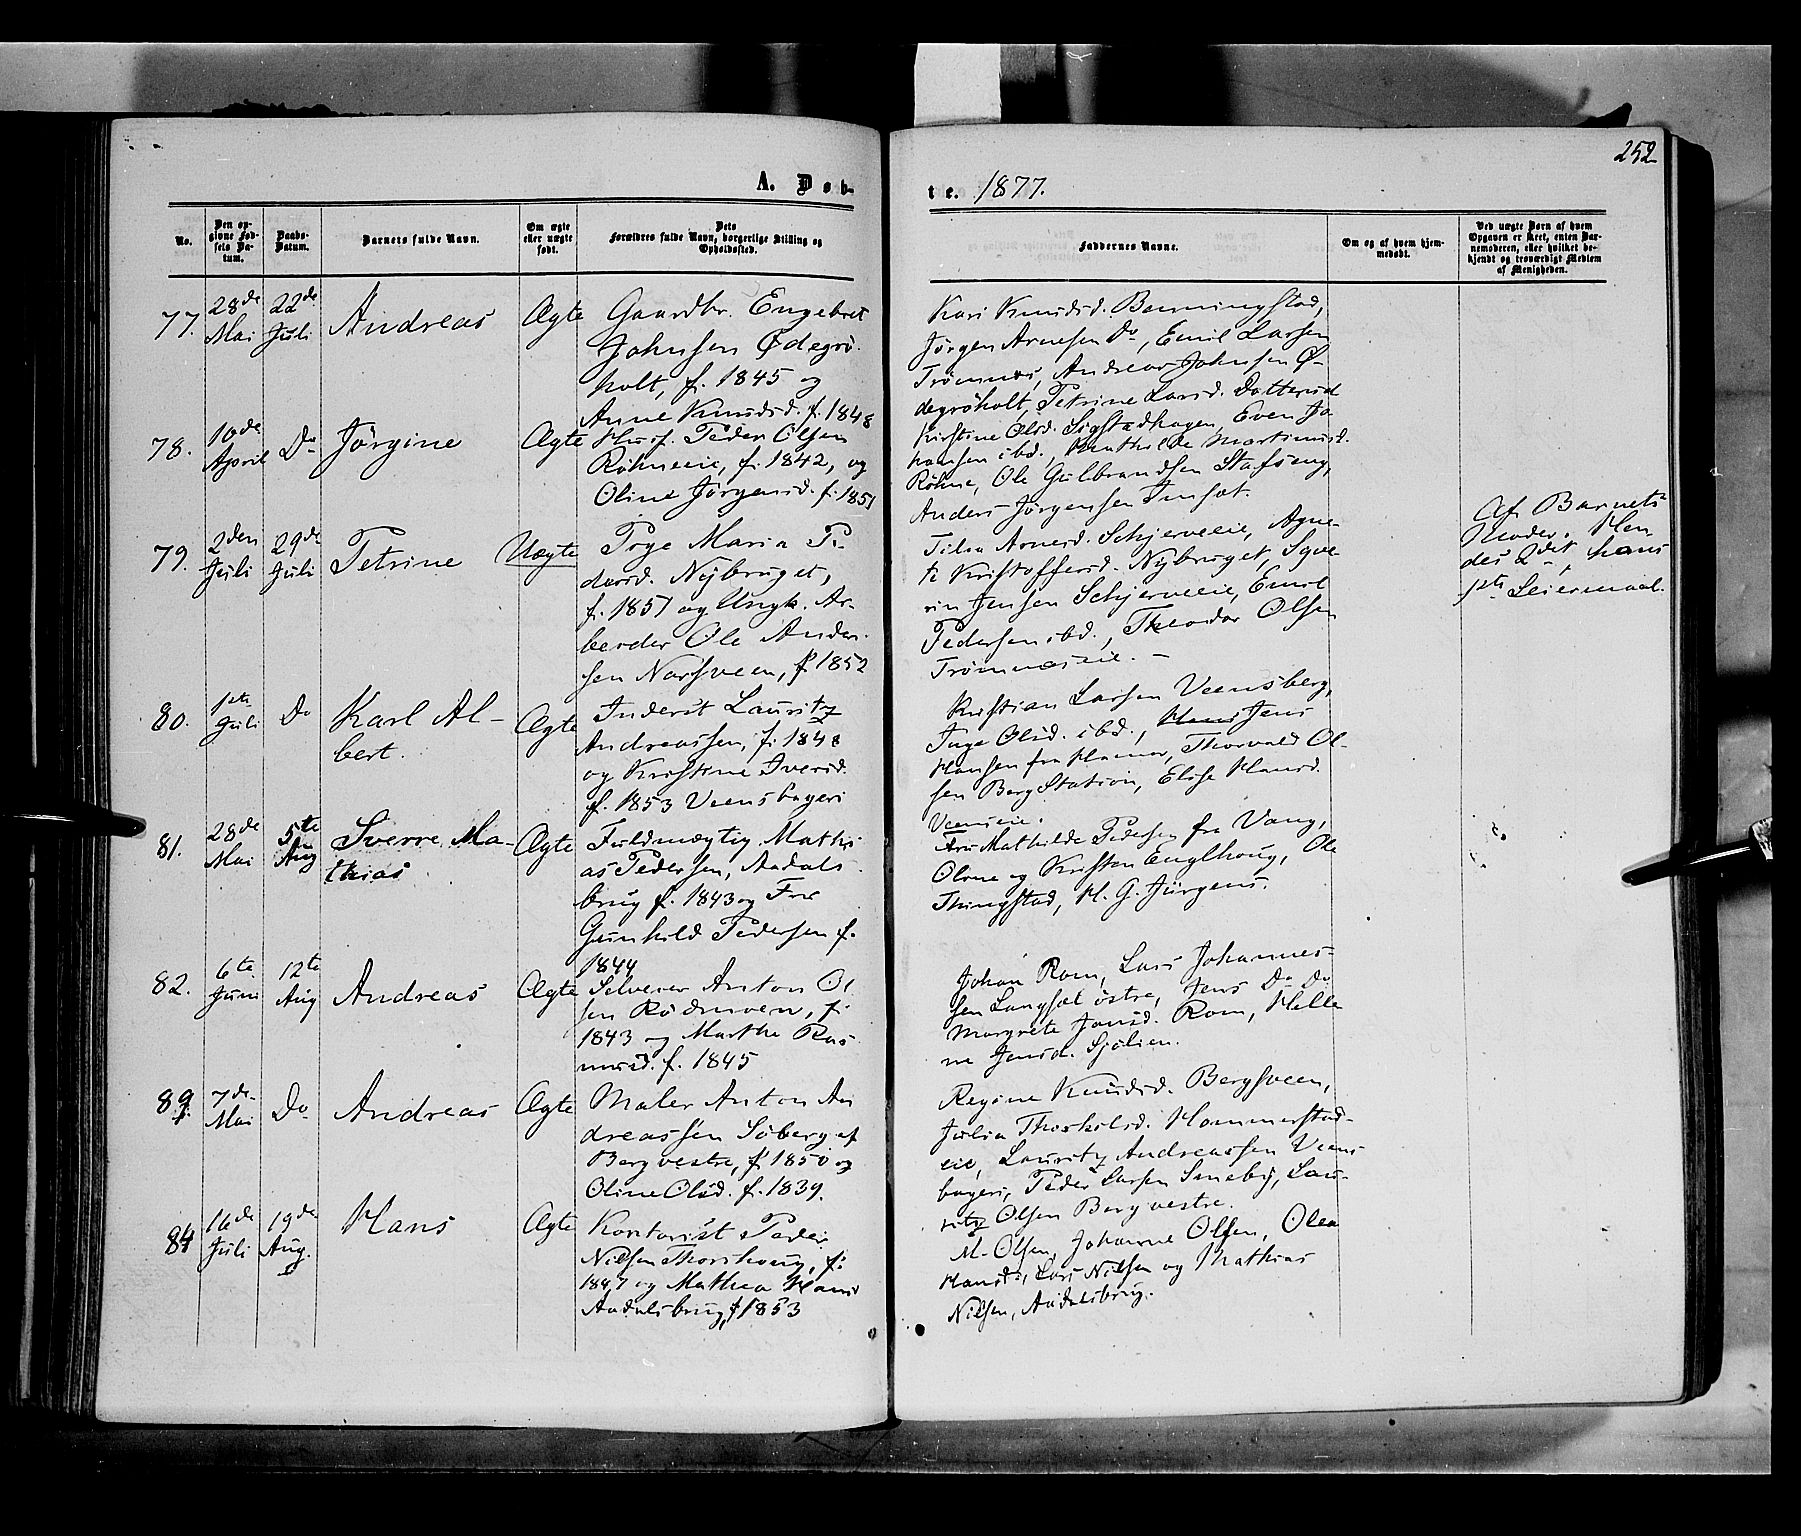 252
A. Døb-
te. 1877.
No.
Den op-
givne Fød-
sels Da-
tum.
Daabs-
Datum.
Barnets fulde Navn.
Om ægte
eller uægte
født.
Dets
Forældres fulde Navn, borgerlige Stilling og
Opholdssted.
Faddernes Navne.
Om og af hvem hjem-
medøbt.
Ved uægte Børn af hvem
Opgaven er skeet, enten Bar-
nemoderen, eller hvilket be-
kjendt og troværdigt Medlem
af Menigheden.
77.
28de
Mai
22de
Juli
Andreas
Ægte
Gaardbr. Engebret
Johnsen Ødegrø-
holt, f. 1845 og
Anne Knudsd. f. 1848
Kari Knudsd. Benningstad,
Jørgen Arnesen Do, Emil Larsen
Trømnæs, Andreas Johnsen Ø-
degrøholt, Petrine Larsd. Dotterud
78.
10de
April
Do
Jørgine
Ægte
Husf. Peder Olsen
Røhneeie, f. 1842, og
Oline Jørgensd. f. 1851
Kirstine Olsd. Sigstadhagen, Even Jo
hansen ibd., Mathilde Martinusd.
Røhne, Ole Gulbrandsen Stafseng,
Anders Jørgensen Imsæt.
79.
2den
Juli
29de
Juli
Petrine
Uægte
Pige Maria Pe-
dersd. Nybruget,
f. 1851 og Ungk. Ar-
beider Ole Ander-
sen Narsveen, f. 1852
Tilia Arnesd. Schjerveeie, Agne-
te Kristoffersd. Nybruget, Sque
rin Jensen Schjerveeie, Emil
Pedersen ibd., Theodor Olsen
Trømnæseie. –
Af Barnets
Moder. Hen
des 2det, hans
1ste Leiermaal.
80.
1ste
Juli
Do
Karl Al-
bert.
Ægte
Inderst Lauritz
Andreassen, f. 1848
og Kristine Iversd.
f. 1853 Veensbageri
Kristian Larsen Veensberg,
Inge Olsd. ibd., Hans Jens
Hansen fra Hamar, Thorvald Ol-
sen Berg Station, Elise Hansd.
Veenseie.
81.
28de
Mai
5te
Aug
Sverre Ma-
thias
Ægte
Fuldmægtig Mathi
as Pedersen, Aadals-
brug f. 1843 og Fru
Gunhild Pedersen f.
1844
Fru Mathilde Pedersen fra Vang,
Oline og Kristen Englhoug, Ole
Thingstad, H. G. Jürgens.
82.
6te
Juni
12te
Aug
Andreas
Ægte
Selveier Anton Ol
sen Rødnwen, f.
1843 og Marthe Ras
musd. f. 1845
Johan Rom, Lars Johannes-
sen Langsæt østre, Jens Do Do
Margrete Jonsd. Rom, Helle
ne Jensd. Sjølien.
83.
7de
Mai
Do
Andreas
Ægte
Maler Anton An
dreassen Søberg af
Berg vestre, f. 1850 og
Oline Olsd. f. 1839.
Regine Knudsd. Bergsveen,
Julia Thorkilsd. Hommerstad-
eie, Lauritz Andreassen Veens-
bageri, Peder Larsen Smeby, Lau-
ritz Olsen Berg vestre.
84
16de
Juli
19de
Aug.
Hans
Ægte
Kontorist Peder
Nielsen Thorshoug, f.
1847 og Mathea Hansd
Aadalsbrug, f. 1853
M. Olsen, Johanne Olsen, Olea
Hansd., Lars Nielsen og Mathias
Nielsen, Aadalsbrug.